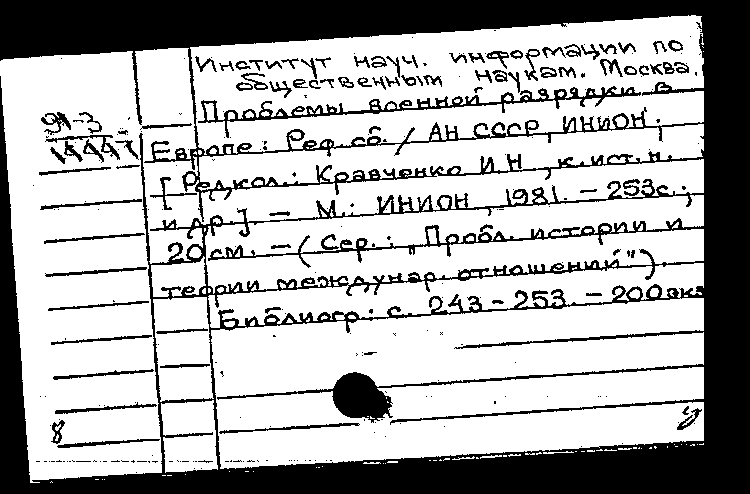 Институт науч. информации по
общественным наукам. Москва.
Проблемы военной разрядки в
91-3
Европе: Реф. сб. / АН СССР, ИНИОН;
[Редкол.: Кравченко И.Н., к.ист.н.
и др.] – М.: ИНИОН, 1981. – 253с.;
20 см. – (Сер.: „Пробл. истории и
теории междунар. отношений").
Библиогр.: с. 243-253. – 200экз
8
у